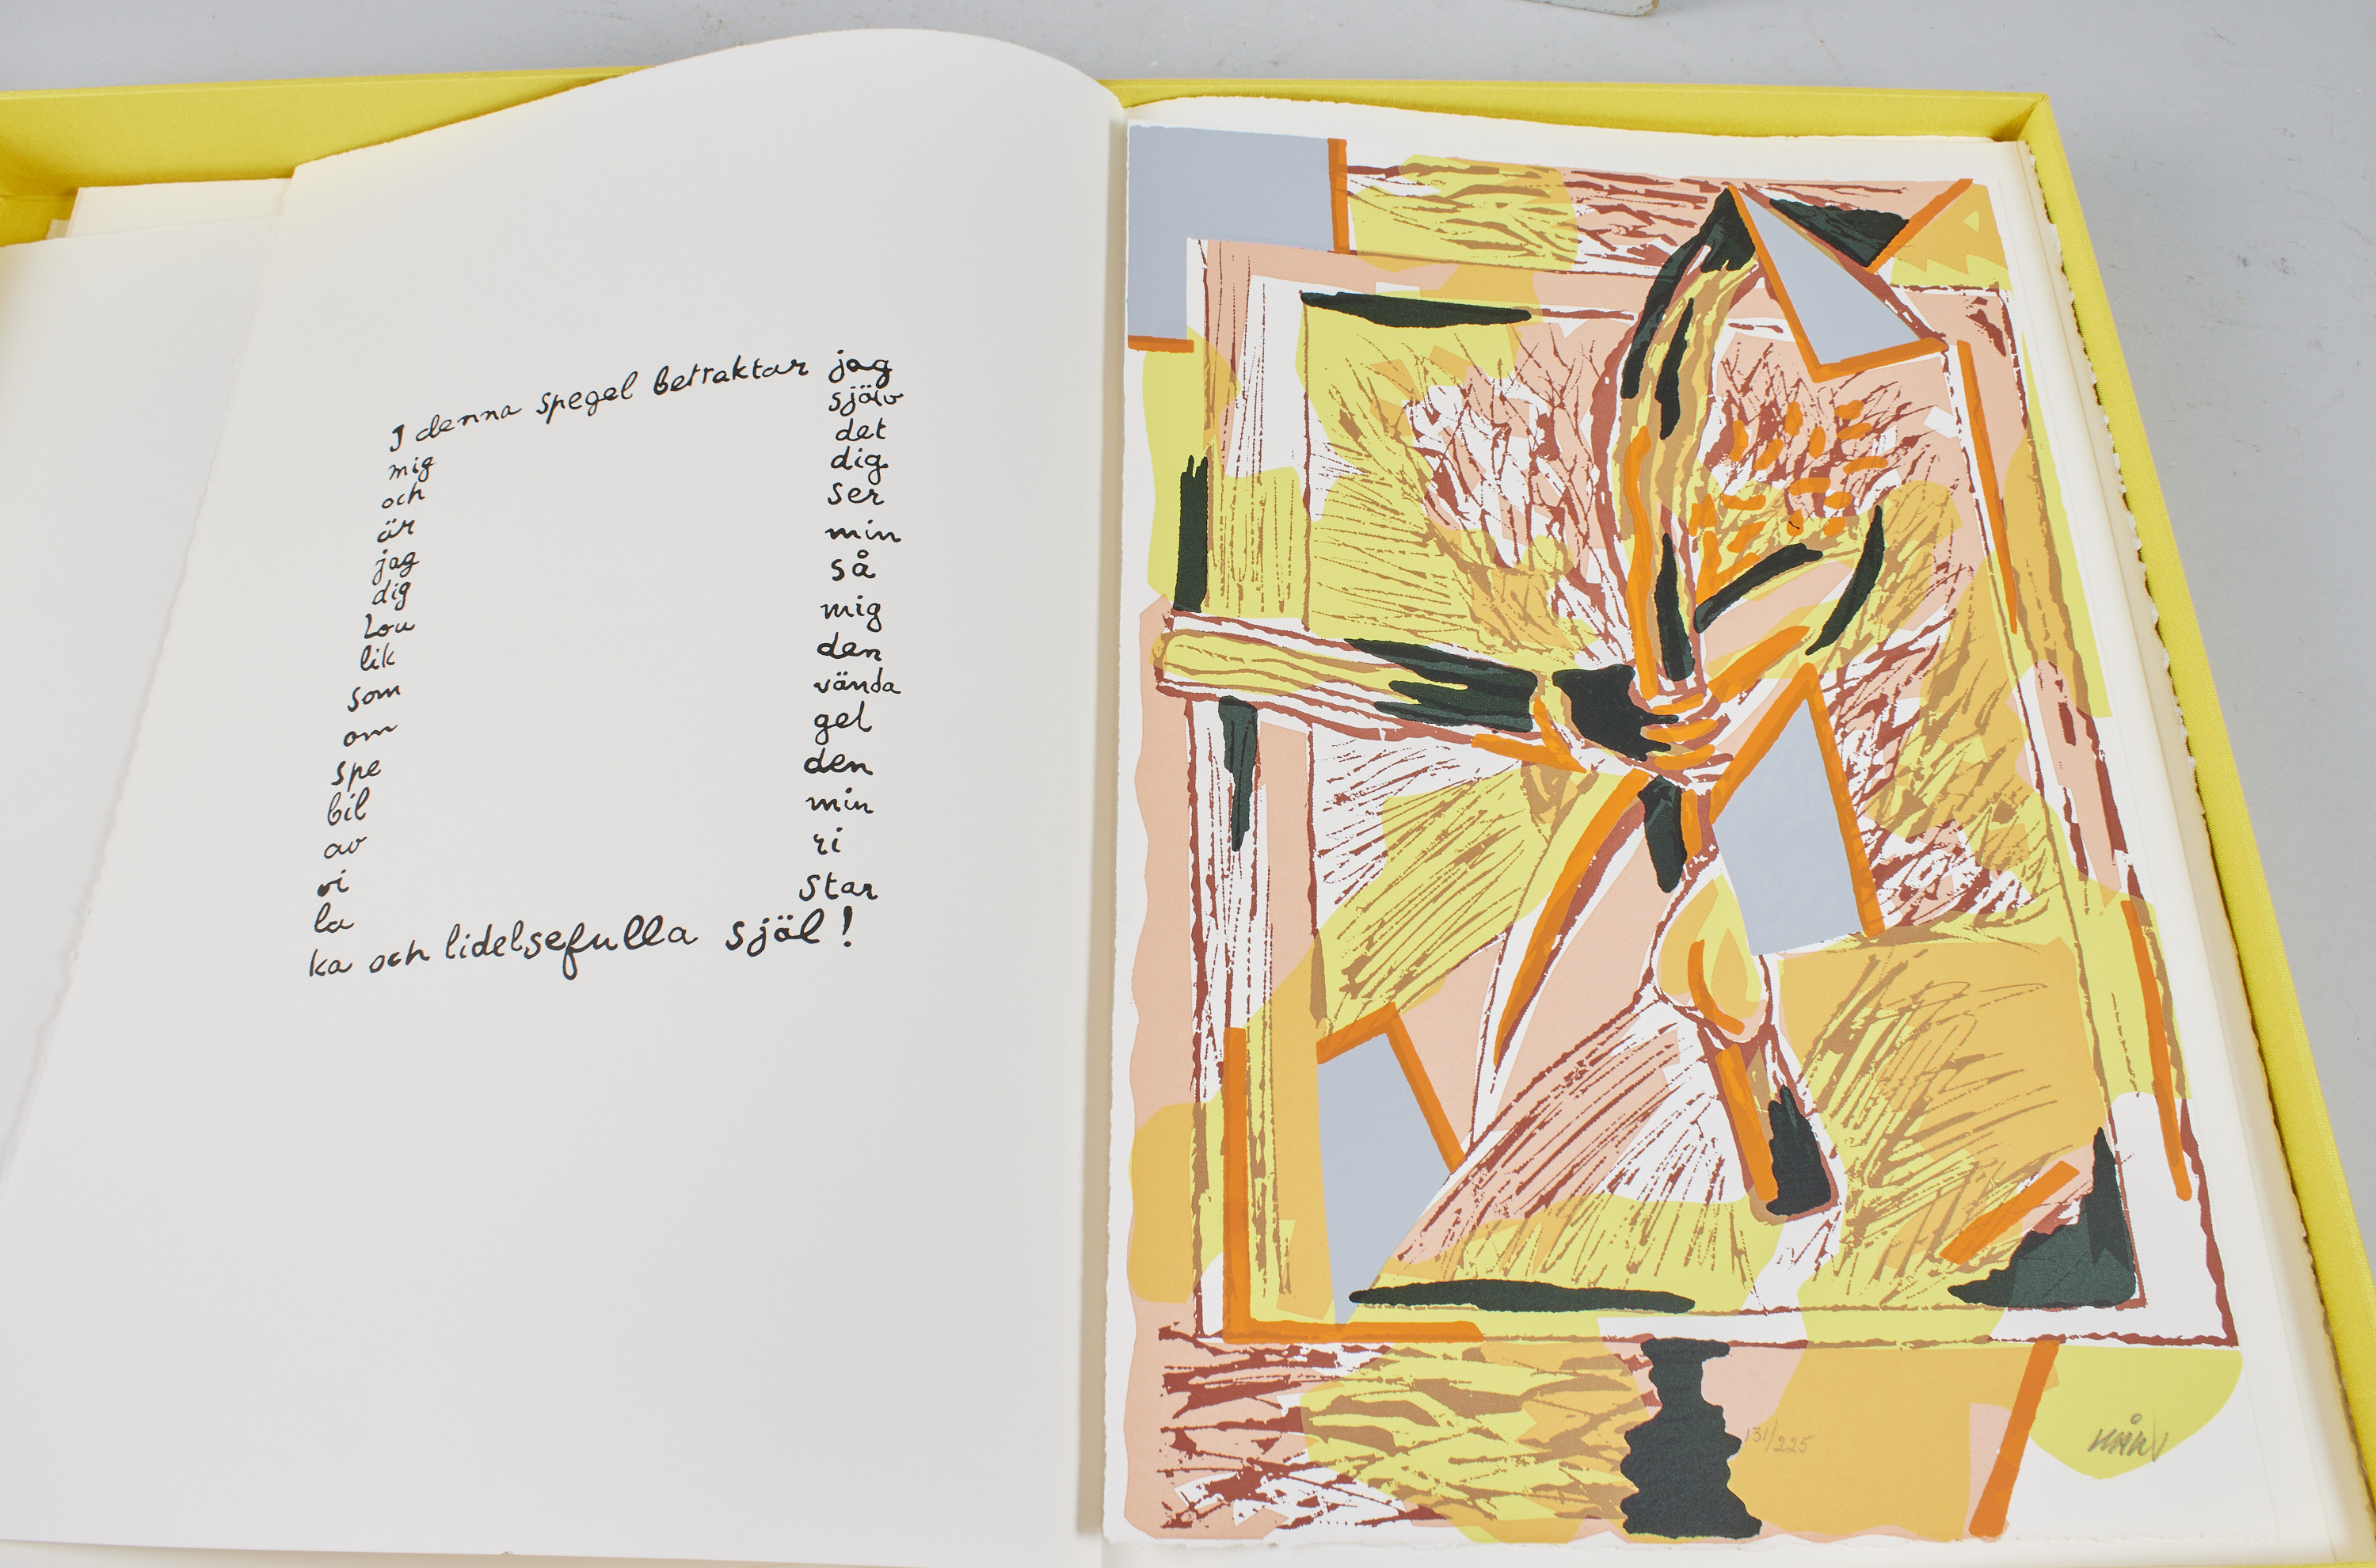 I denna spegel betraktar jag
mig själv
och det
är dig
jag ser
dig min
Lou så
lik mig
som den
om vända
spe gel
bil den
av min
vi ri
la star
ka och lidelsefulla själ!
131/225